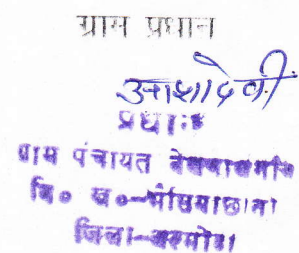 ग्राम प्रधान
आशा देवी
प्रधान
ग्राम पंचायत
वि० ख०-भैसियाछाना
जिला-अल्मोड़ा